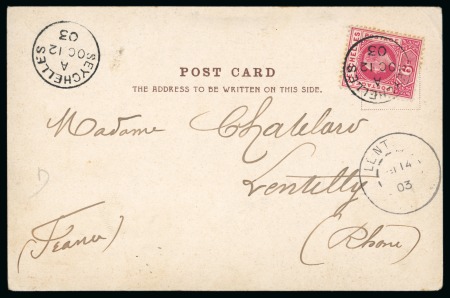 SEYCHELLES
A
OC 12
03
SEYCHELLES
6
A
OC 12
03
POST CARD
THE ADDRESS TO BE WRITTEN ON THIS SIDE.
Madame Chatelard
Lentilly
(France) (Rhone)
LENT
14
03
D